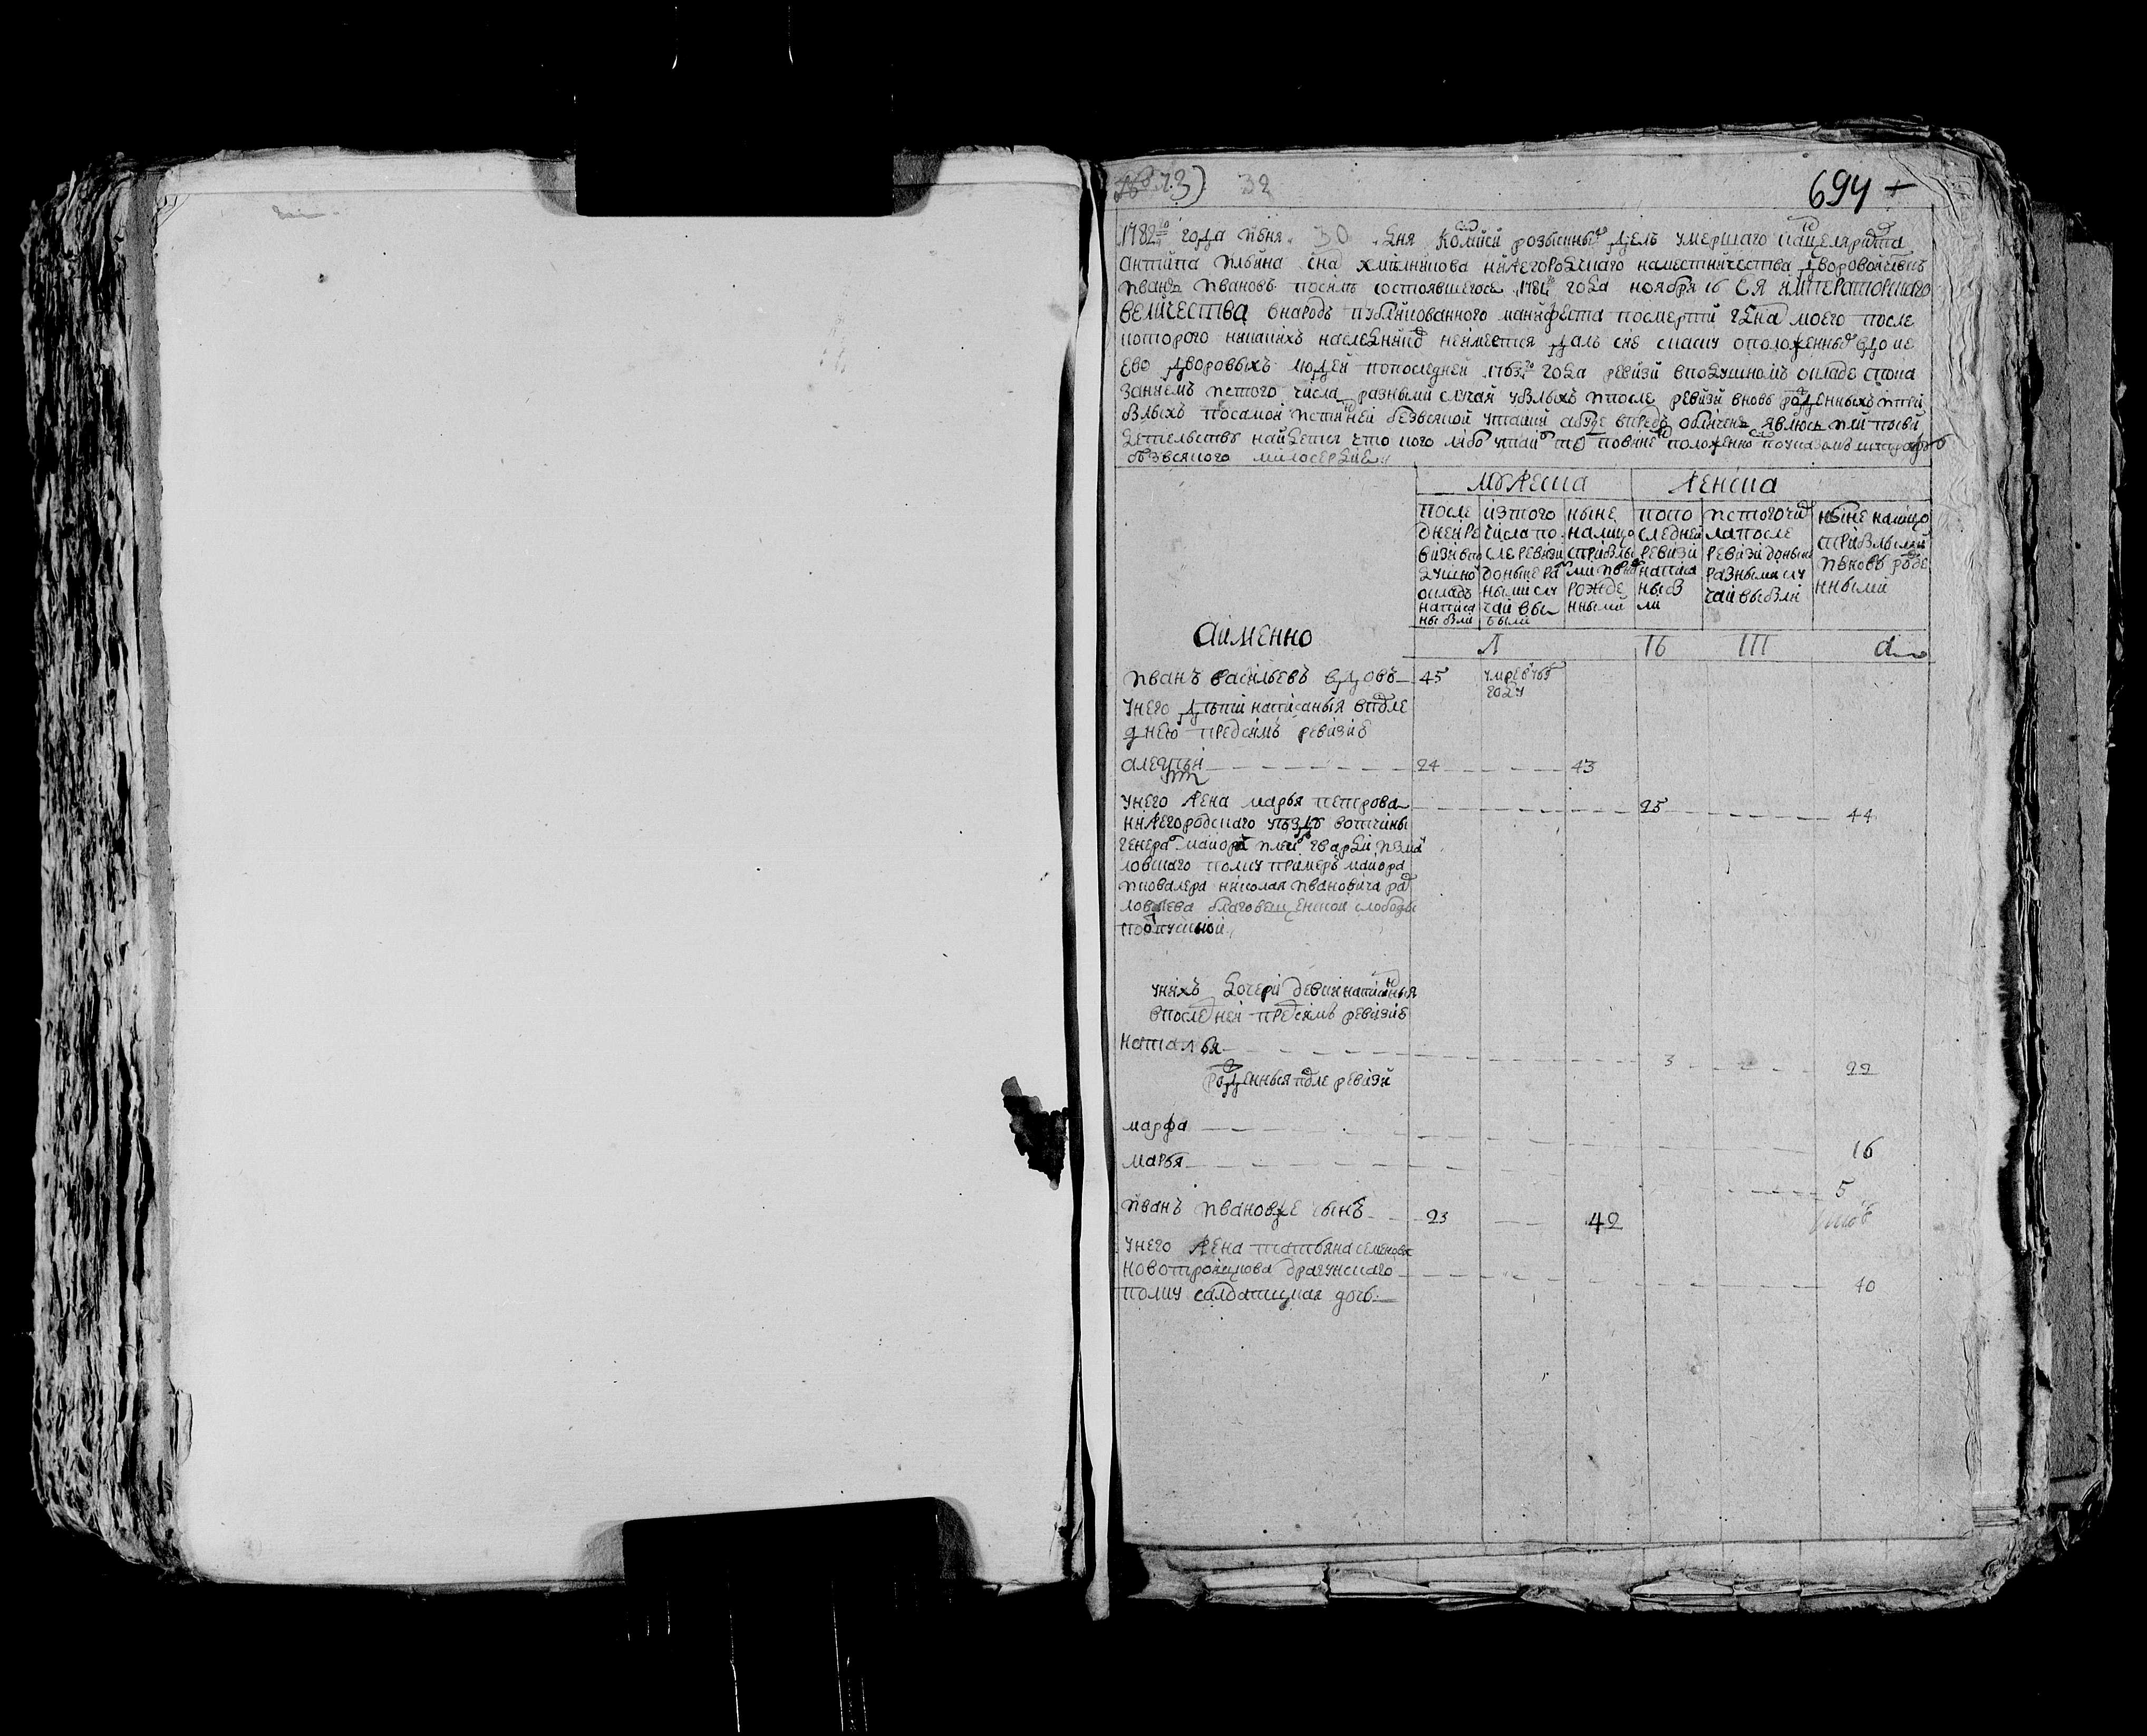 № 73) 32
694 +
1782го года июня 30 дня комисии розыскных дел умершаго канцеляриста
антипа ильина сна хмельникова нижегородскаго наместничества дворовой ево
иванъ ивановъ посилѣ состоявшегося 1781го года ноября 16 ЕЯ ИМПЕРАТОРСКАГО
ВЕЛИЧЕСТВА внародъ публикованного манифеста посмерти гдна моего после
которого никакихъ наследников неимеется далъ сие скаску оположенных
ево дворовыхъ людей попоследней 1763го года ревизии вподушномъ окладе спока
заниемъ истого числа разными случаи убылыхъ ипосле ревизии вновь рожденныхъ
былыхъ посамой истинней безвсякой утайки абуде впредь обличенъ явлюсь или посви
детельству найдется что кого либо утаил то повинен положенному поуказомъ штрафу
безвсякого милосердия
мужеска
женска
после
дней ре
визии впо
душной
окладъ
написа
ны были
изтого
числа по
сле ревизии
доныне раз
ными слу
чаи вы
были
ныне
налицо
сприбылы
ми ивнов
рожде
нными
попо
следней
ревизии
написа
ны бы
ли
истогочис
лапосле
ревизии доныне
разными слу
чаи выбыли
ныне налицо
сприбылыми
ивновь рожде
нными
Аимянно
л
ть
ттт
иванъ васильевъ вдовъ 45 умре в 765 году
унего дети написаныя впосле
днею предсимъ ревизию
алексѣй 24 43
унего жена марья петрова 25 44
нижегородскаго уезда вотчины
генерал маиора илейб гвардии изма
ловскаго полку примеръ маиора
икавалера николая ивановича
благовещенской слободы
поотпускной
унихъ дочери девки написанныя
впоследней предсимъ ревизию
наталья 3 22
рожденныя после ревизии
марфа 16
марья 5
иванъ ивановже сынъ 23 42
унего жена татьяна семенова
новотроицкова драгунскаго 40
полку салдацкая дочь